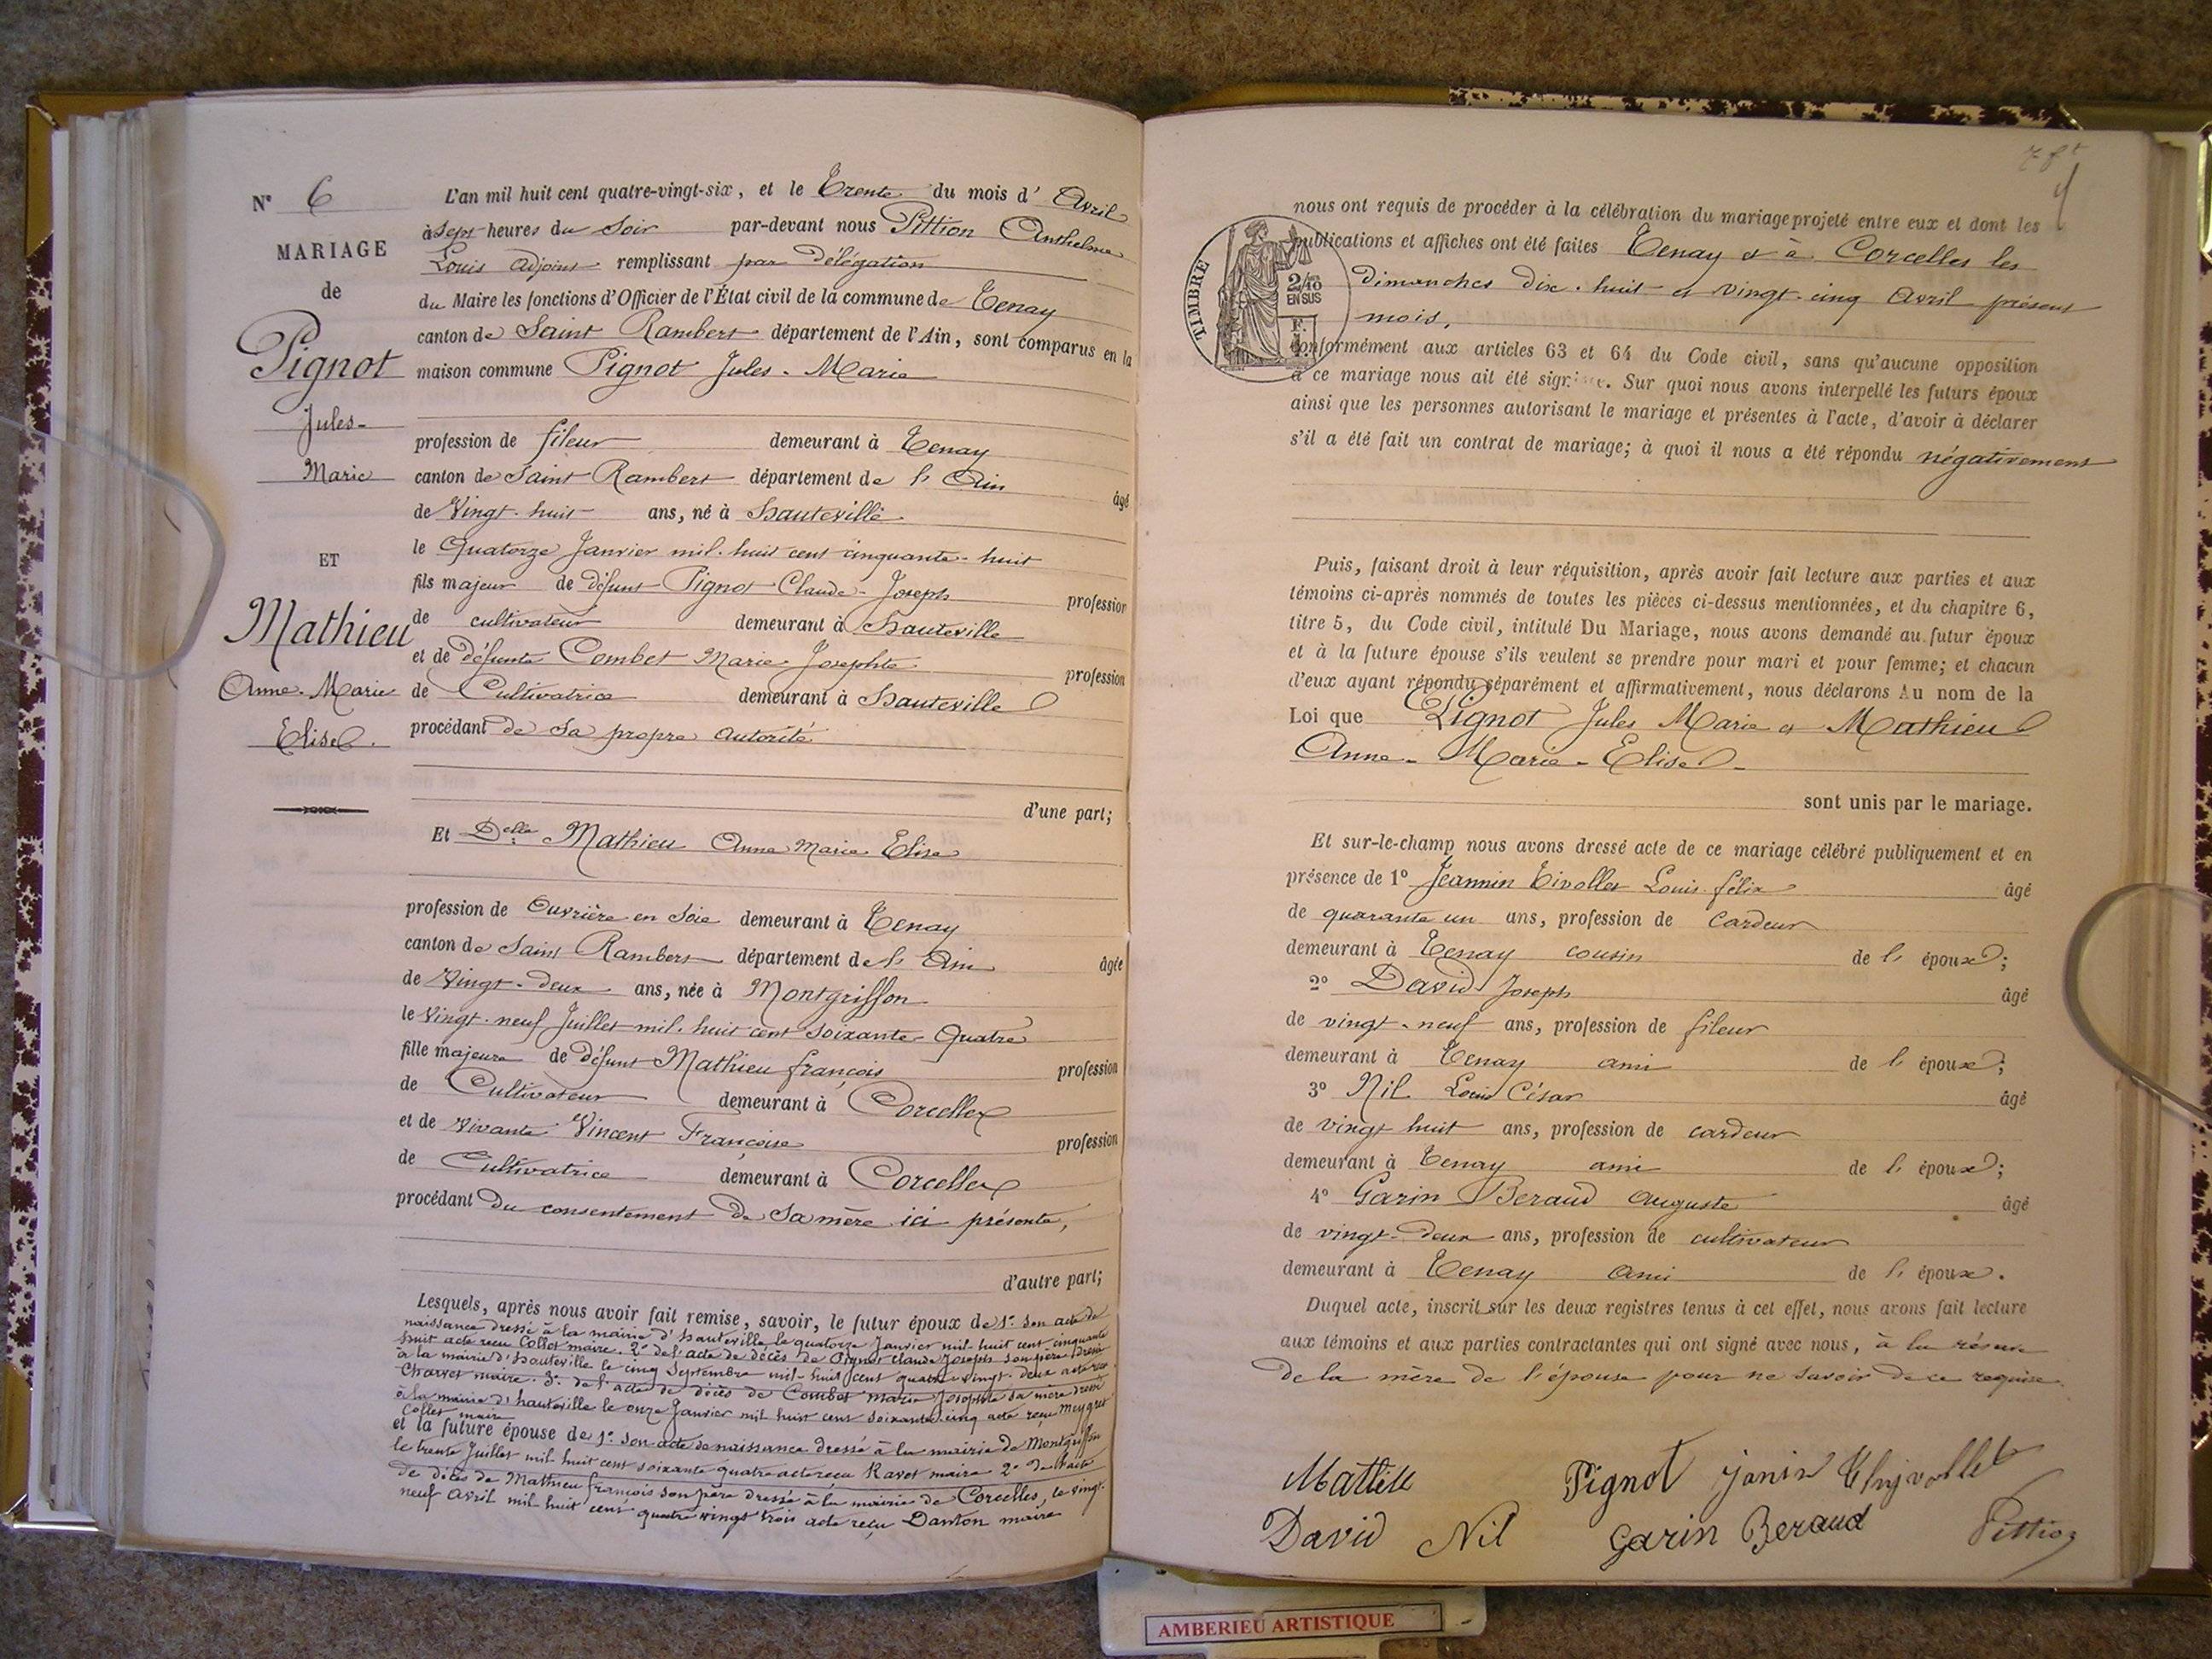 N° 6
MARIAGE
de
Pignot
Jules-
Marie
ET
Mathieu
Anne-Marie
Elise.
L'an mil huit cent quatre-vingt-six, et le Trente du mois d' Avril
à Sept heures du Soir par-devant nous Pittion Anthelme
Louis Adjoint remplissant par Délégation
du Maire les fonctions d'Officier de l'État civil de la commune de Tenay
canton de Saint Rambert département de l'Ain, sont comparus en la
maison commune Pignot Jules-Marie
profession de fileur demeurant à Tenay
canton de Saint Rambert département de l'Ain âgé
de Vingt-huit ans, né à hauteville
le Quatorze Janvier mil-huit cent cinquante-huit
fils majeur de défunt Pignot Claude-Joseph profession
de cultivateur demeurant à hauteville
et de défunte Combet Marie-Josephte profession
de Cultivatrice demeurant à hauteville
procédant de sa propre autorité
d'une part;
Et Delle Mathieu Anne Marie Elise
profession de Ouvrière en Soie demeurant à Tenay
canton de Saint Rambert département de l'Ain âgée
de Vingt-deux ans, née à Montgriffon
le Vingt-neuf Juillet mil-huit cent soixante-Quatre
fille majeure de défunt Mathieu françois profession
de Cultivateur demeurant à Corcelles
et de vivante Vincent Françoise profession
de Cultivatrice demeurant à Corcelles
procédant du consentement de Sa mère ici présente,
d'autre part;
Lesquels, après nous avoir fait remise, savoir, le futur époux de 1° son acte de
naissance dressé à la mairie d'hauteville le quatorze Janvier mil-huit cent-cinquante
huit acte reçu Collet maire. 2° de l'acte de décès de Pignot Claude Joseph son père dressé
à la mairie d'hauteville le cinq Septembre mil-huit cent quatre vingt-deux acte reçu
Charvet maire. 3° de l'acte de décès de Combet Marie Josephte sa mère dressé
à la mairie d'hauteville le onze Janvier mil huit cent soixante-cinq acte reçu Meygret
Collet maire
et la future épouse de 1° son acte de naissance dressé à la mairie de Montgriffon
le trente Juillet mil huit cent soixante quatre acte reçu Ravet maire 2° de l'acte
de décès de Mathieu françois son père dressé à la mairie de Corcelles, le vingt-
neuf Avril mil huit cent quatre vingt trois acte reçu Danton maire
TIMBRE
2/10
EN SUS
nous ont requis de procéder à la célébration du mariage projeté entre eux et dont les
publications et affiches ont été faites Tenay et à Corcelles les
Dimanches dix-huit et vingt-cinq Avril présent
mois,
conformément aux articles 63 et 64 du Code civil, sans qu'aucune opposition
à ce mariage nous ait été signifiée. Sur quoi nous avons interpellé les futurs époux
ainsi que les personnes autorisant le mariage et présentes à l'acte, d'avoir à déclarer
s'il a été fait un contrat de mariage; à quoi il nous a été répondu négativement
Puis, faisant droit à leur réquisition, après avoir fait lecture aux parties et aux
témoins ci-après nommés de toutes les pièces ci-dessus mentionnées, et du chapitre 6,
titre 5, du Code civil, intitulé Du Mariage, nous avons demandé au futur époux
et à la future épouse s'ils veulent se prendre pour mari et pour femme; et chacun
d'eux ayant répondu séparément et affirmativement, nous déclarons Au nom de la
Loi que Pignot Jules Marie et Mathieu
Anne-Marie-Elise-
sont unis par le mariage.
Et sur-le-champ nous avons dressé acte de ce mariage célébré publiquement et en
présence de 1° Jeannin Tivollet Louis félix âgé
de quarante un ans, profession de Cardeur
demeurant à Tenay cousin de l' époux;
2° David Joseph âgé
de vingt-neuf ans, profession de fileur
demeurant à Tenay ami de l' époux;
3° Nil Louis César âgé
de vingt huit ans, profession de cardeur
demeurant à Tenay ami de l' époux;
4° Garin Beraud Auguste âgé
de vingt-deux ans, profession de cultivateur
demeurant à Tenay ami de l' époux.
Duquel acte, inscrit sur les deux registres tenus à cet effet, nous avons fait lecture
aux témoins et aux parties contractantes qui ont signé avec nous, à la réserve
de la mère de l'épouse pour ne savoir de ce requise.
Pignot Janin Thyvollet
David Nil Garin Beraud Pittion
AMBERIEU ARTISTIQUE